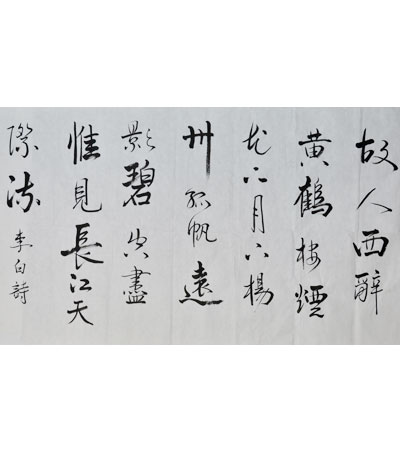 故人西辭
黄鶴樓煙
花三月下揚
州孤帆遠
影碧空盡
惟見長江天
際流 李白詩